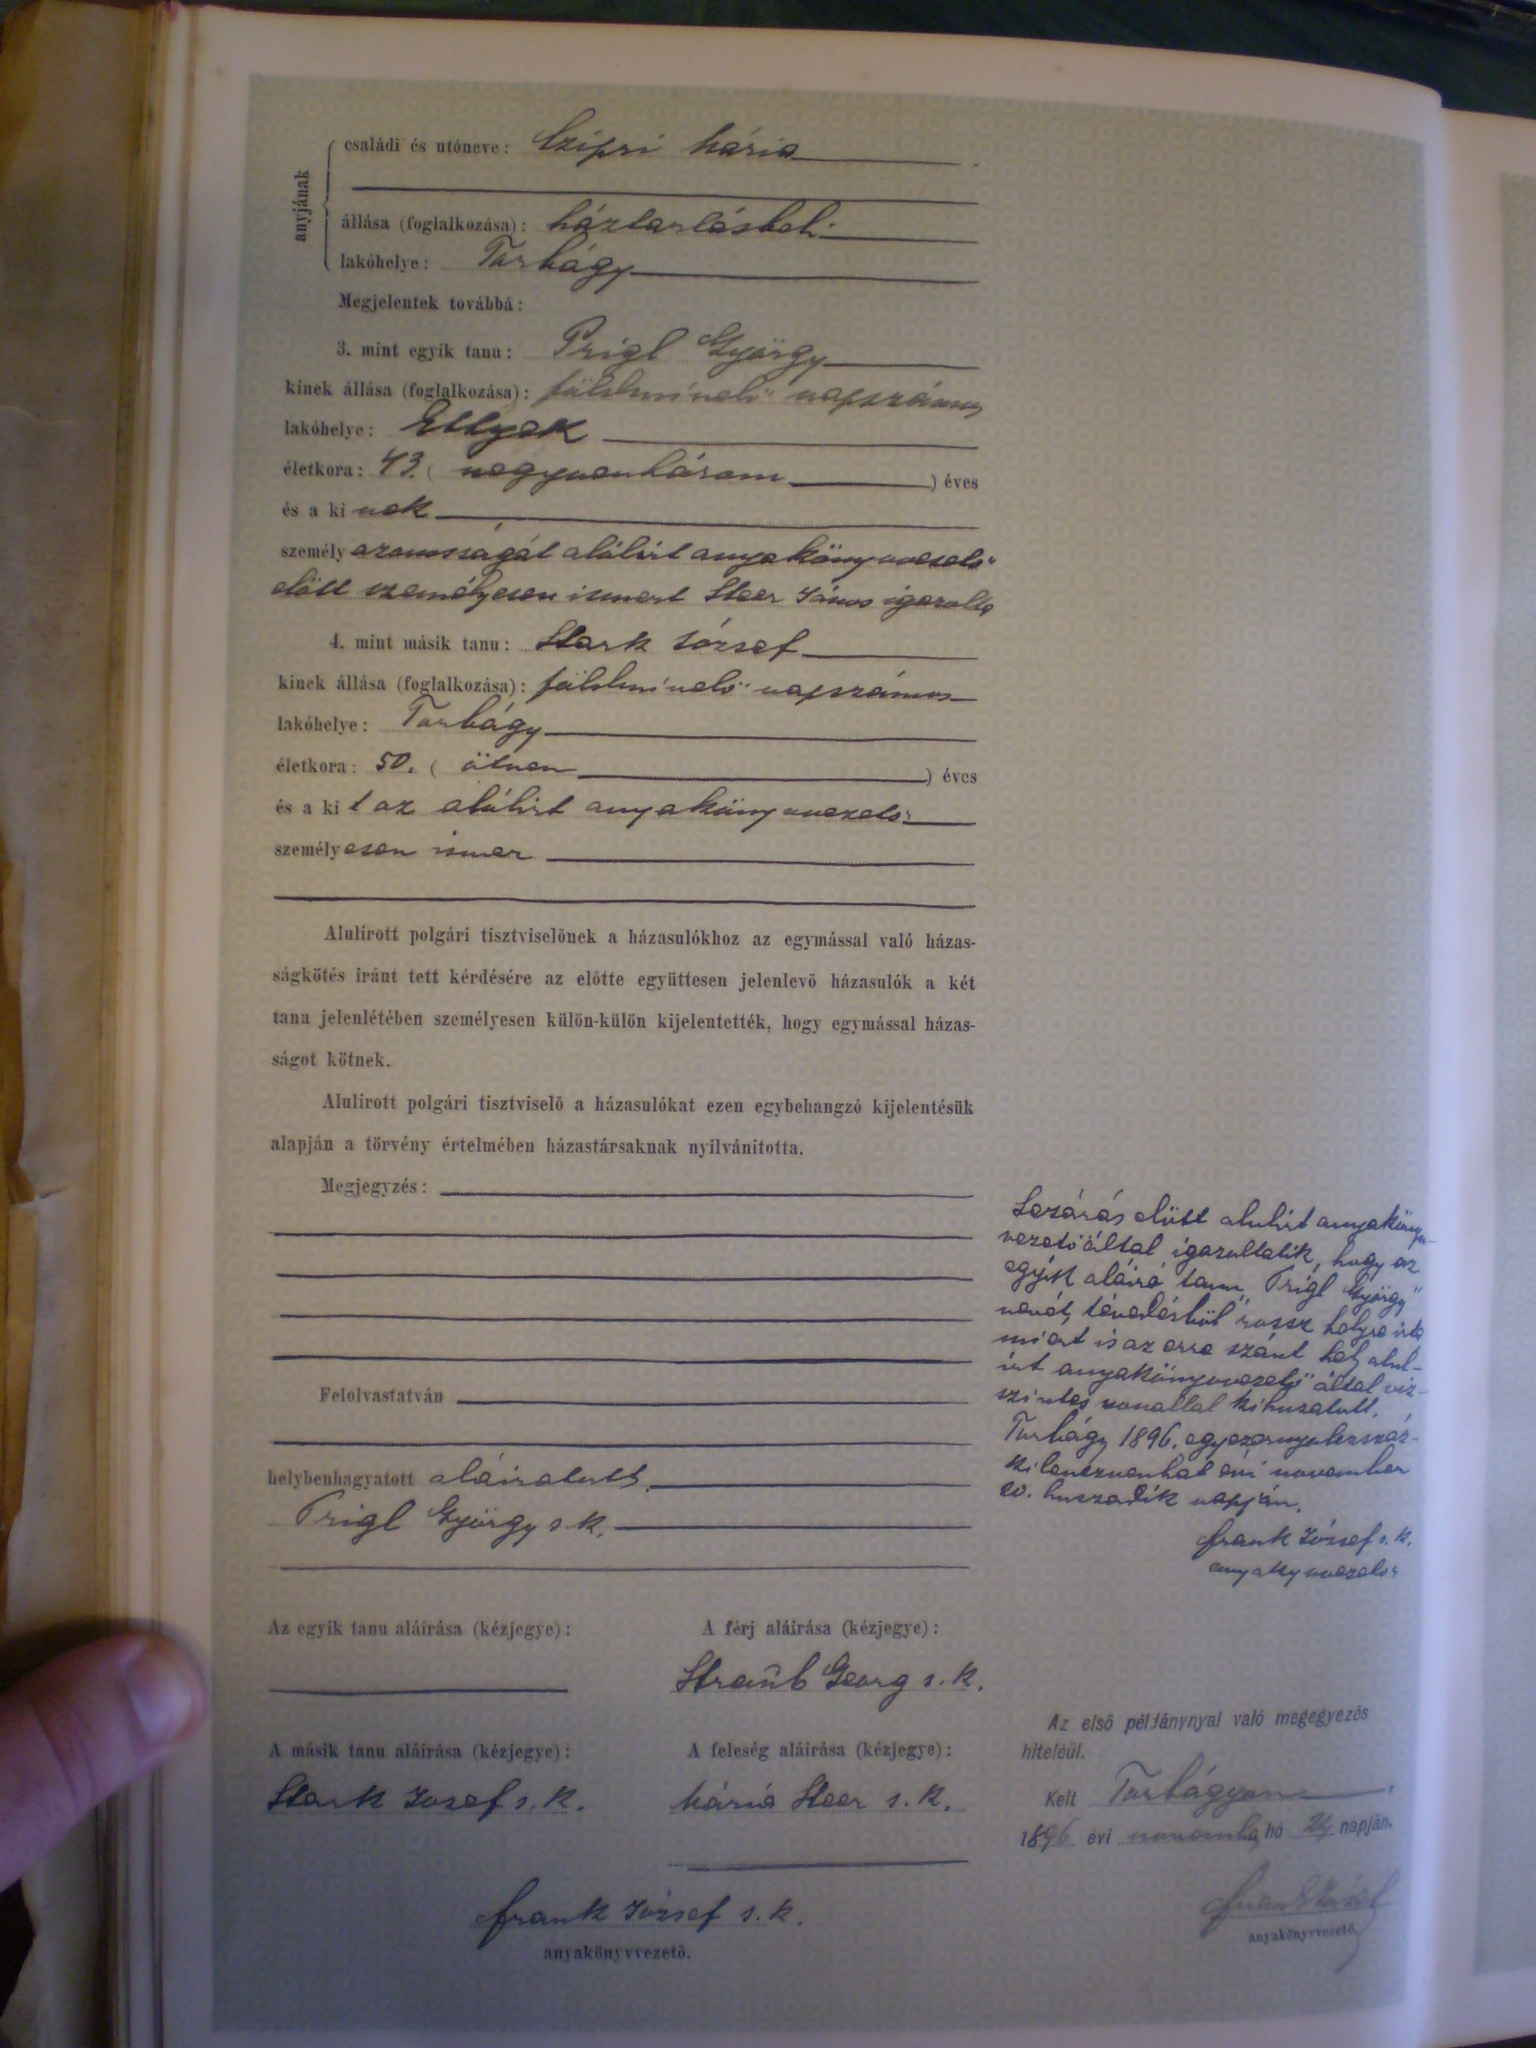 anyjának
családi és utóneve: Czipri Mária
állása (foglalkozása): háztartásbeli
lakóhelye: Torbágy
Megjelentek továbbá:
3. mint egyik tanu: Prigl György
kinek állása (foglalkozása): földmívelő napszámos
lakóhelye: Ettyek
életkora: 43. ( negyvenhárom ) éves
és a ki nek
személy azonosságát alólirt anyakönyvvezető
előtt személyesen ismert Steer János igazolta
4. mint másik tanu: Stark József
kinek állása (foglalkozása): földmívelő napszámos
lakóhelye: Torbágy
életkora: 50. ( ötven ) éves
és a ki t az alólirt anyakönyvvezető
személy esen ismer
Alulirott polgári tisztviselőnek a házasulókhoz az egymással való házas-
ságkötés iránt tett kérdésére az előtte együttesen jelenlevő házasulók a két
tanu jelenlétében személyesen külön-külön kijelentették, hogy egymással házas-
ságot kötnek.
Alulirott polgári tisztviselő a házasulókat ezen egybehangzó kijelentésük
alapján a törvény értelmében házastársaknak nyilvánitotta.
Megjegyzés:
Felolvastatván
helybenhagyatott aláiratott.
Prigl György s. k.
Az egyik tanu aláirása (kézjegye):
A férj aláirása (kézjegye):
Straub Georg s. k.
A másik tanu aláirása (kézjegye):
A feleség aláirása (kézjegye):
Stark Josef s. k.
Mária Steer s. k.
Frank József s. k.
anyakönyvvezető.
Lezárás előtt alulirt anyakönyv-
vezető által igazoltatik, hogy az
egyik aláiró tanu, "Prigl György"
nevét, tévedésből rossz helyre irta
miért is az arra szánt hely alul-
irt anyakönyvvezető által viz-
szintes vonallal kihuzatott.
Torbágy 1896. egyezernyolczszáz-
kilenczvenhat évi november
20. huszadik napján.
Frank József s. k.
anyakvvezető
Az első példánynyal való megegyezés
hiteléül.
Kelt Torbágyon
1896 évi november hó 24 napján.
Frank József
anyakönyvvezető.